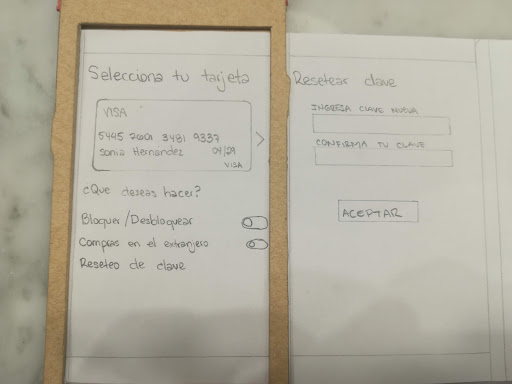 Selecciona tu tarjeta
VISA
5445 7601 3481 9337
Sonia Hernandez 04/29
VISA
¿Que deseas hacer?
Bloquer/Desbloquear
Compras en el extranjero
Reseteo de clave
Resetear clave
INGRESA CLAVE NUEVA
CONFIRMA TU CLAVE
ACEPTAR